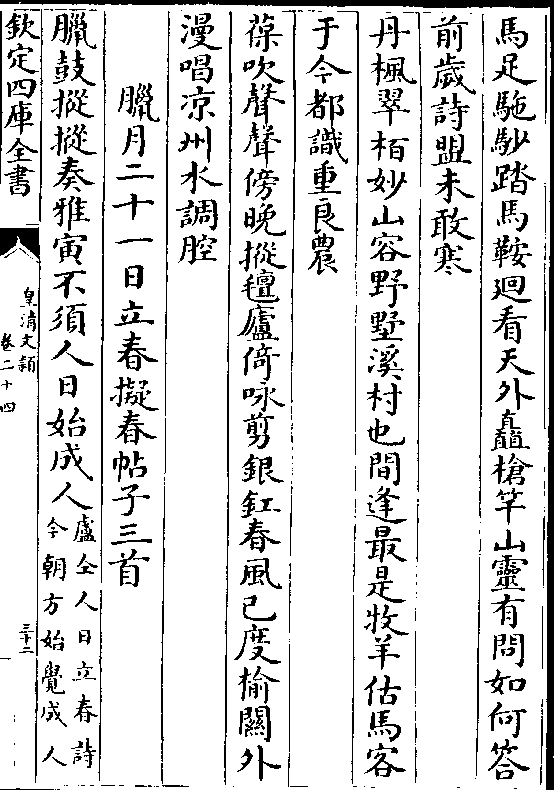 馬足駞䭷踏馬鞍廻看天外矗槍竿山靈有問如何答
前歲詩盟未敢寒
丹楓翠栢妙山容野墅溪村也間逢最是牧羊估馬客
于今都識重良農
葆吹聲聲傍晚摐氊廬倚咏剪銀釭春風已度榆關外
漫唱凉州水調腔
臘月二十一日立春擬春帖子三首
臘鼓摐摐奏雅寅不須人日始成人盧仝人日立春詩
今朝方始覺成人
欽定四庫全書
皇清文頴
卷二十四
三十二